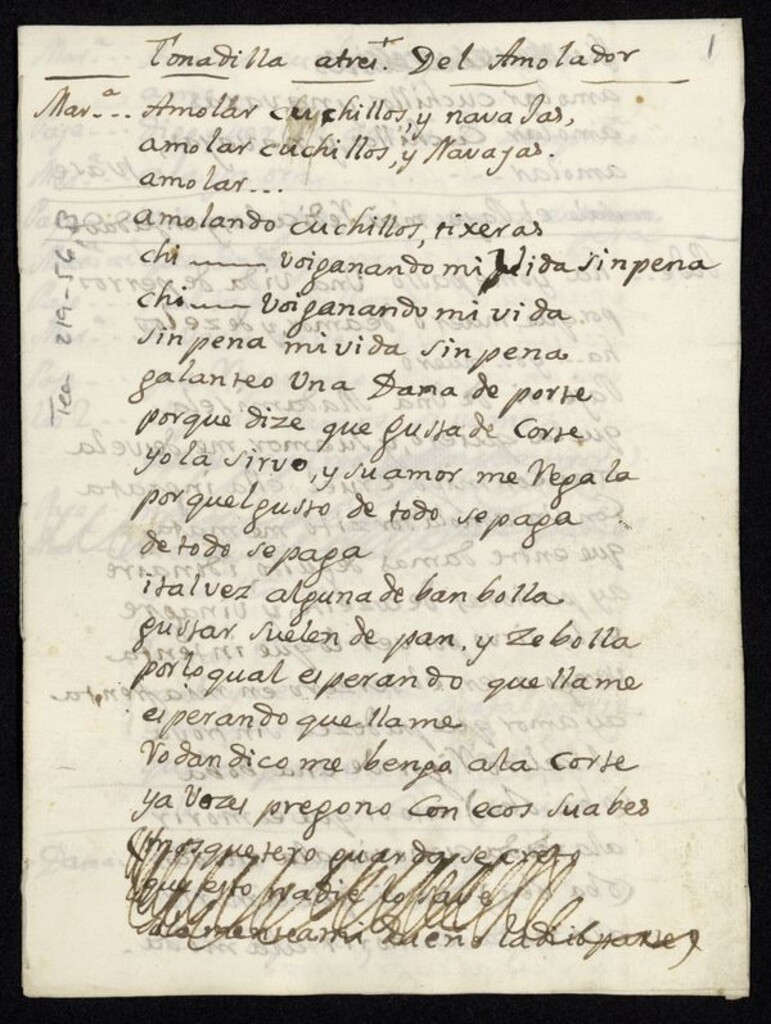 1
Tonadilla atres. Del Amolador
Mar.ª... Amolar cuchillos, y navajas,
amolar cuchillos, y Navajas.
amolar...
amolando cuchillos, tixeras
chi —— voi ganando mi vida sin pena
chi —— voi ganando mi vida
sin pena mi vida sin pena
galanteo una Dama de porte
porque dize que gusta de Corte
yo la sirvo, y su amor me regala
porquel gusto de todo se paga
de todo se paga
i talvez alguna de banbolla
gustar suelen de pan. y zebolla
por lo qual esperando que llame
esperando que llame
rodandico me bengo ala Corte
ya vozes pregono con ecos suabes
mosquetero guarda secreto
que esto nadie lo save
dueño
Tea 219-56, B